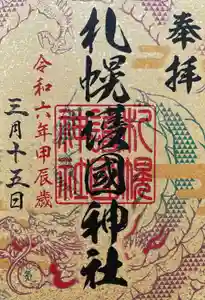 奉拝
札幌護國神社
令和六年甲辰歳
三月十五日
札幌護國神社